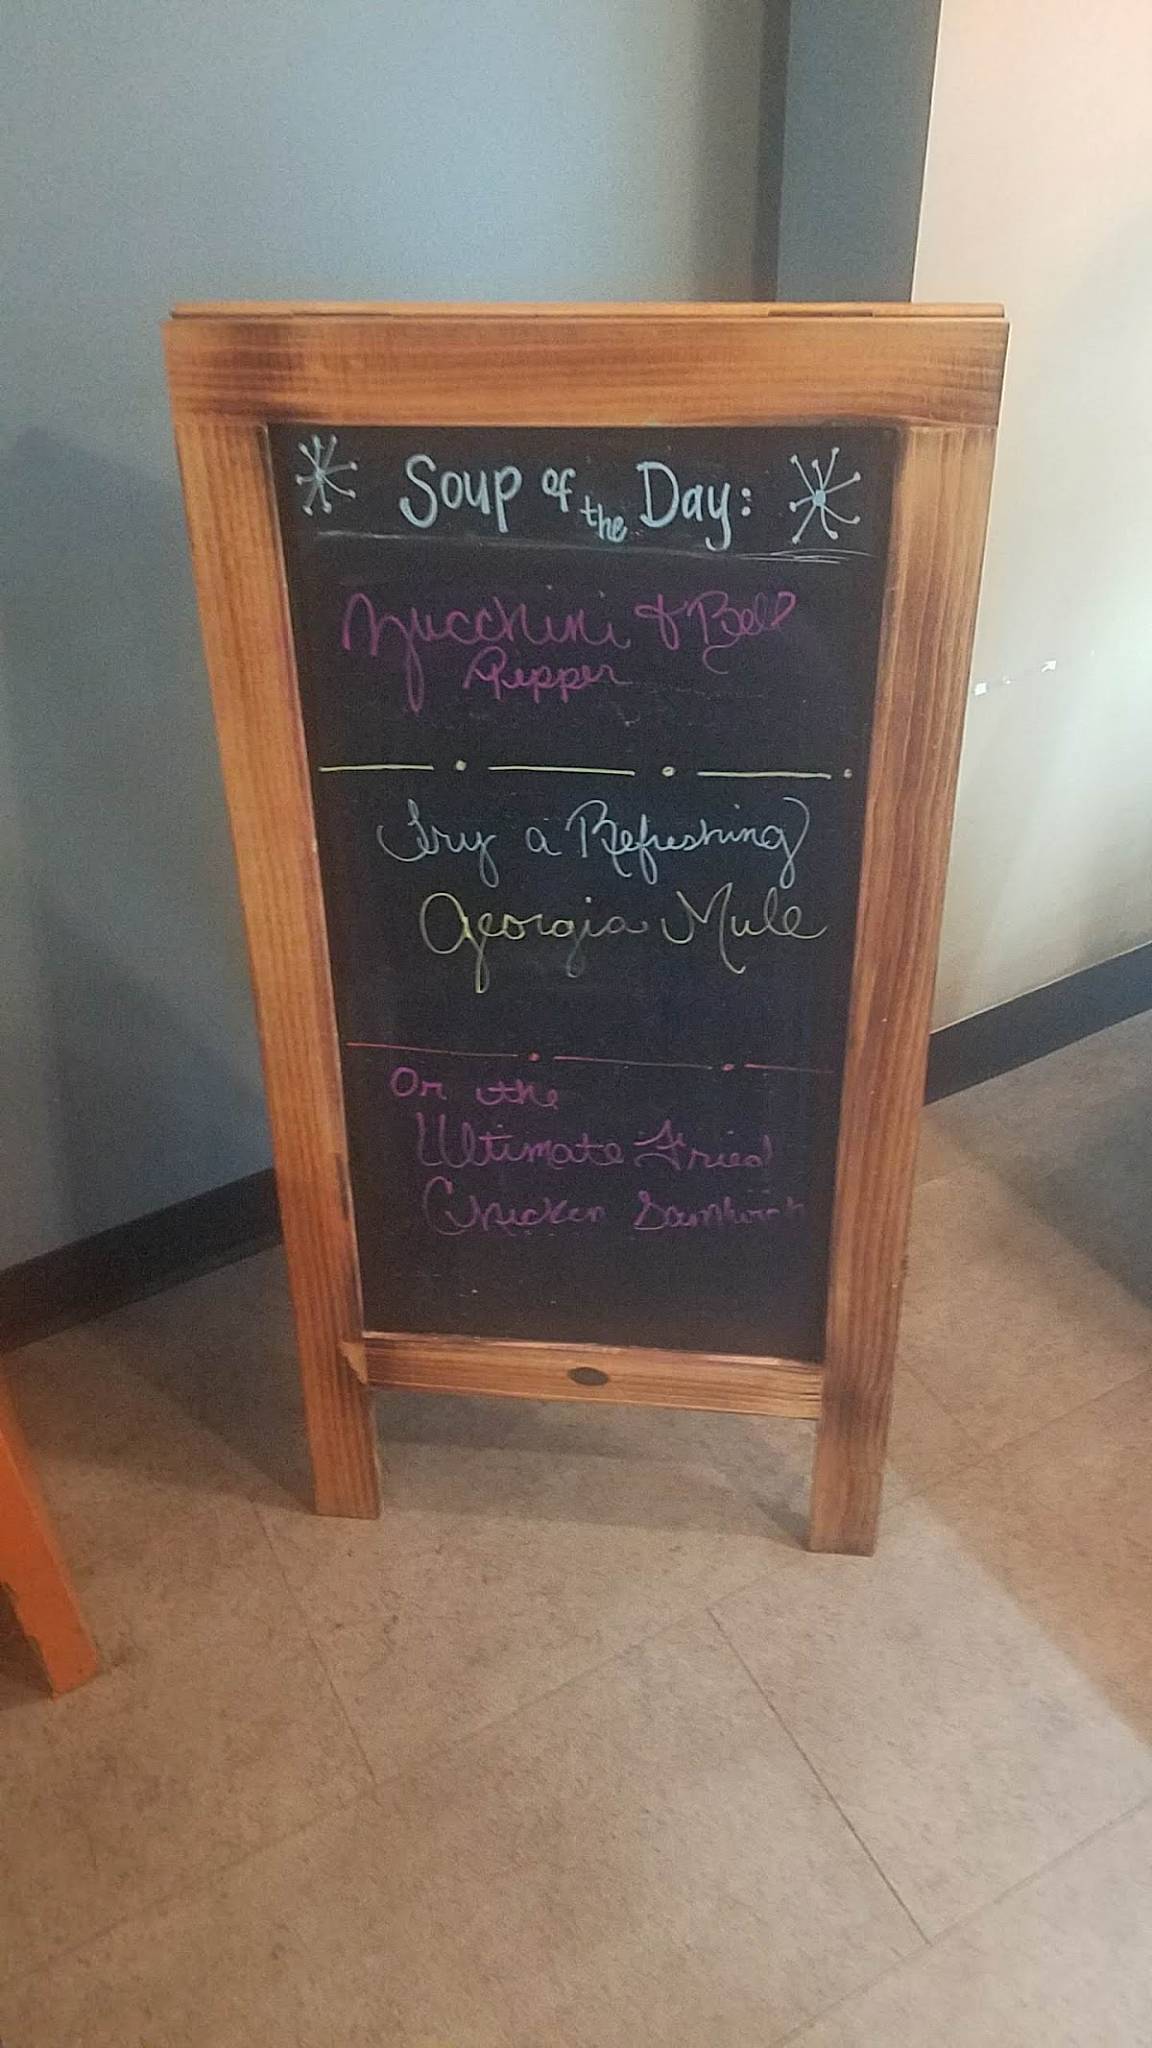 Soup of the Day:
Zucchini & Bell
Pepper
Try a Refreshing
Georgia Mule
Or the
Ultimate Fried
Chicken Sandwich